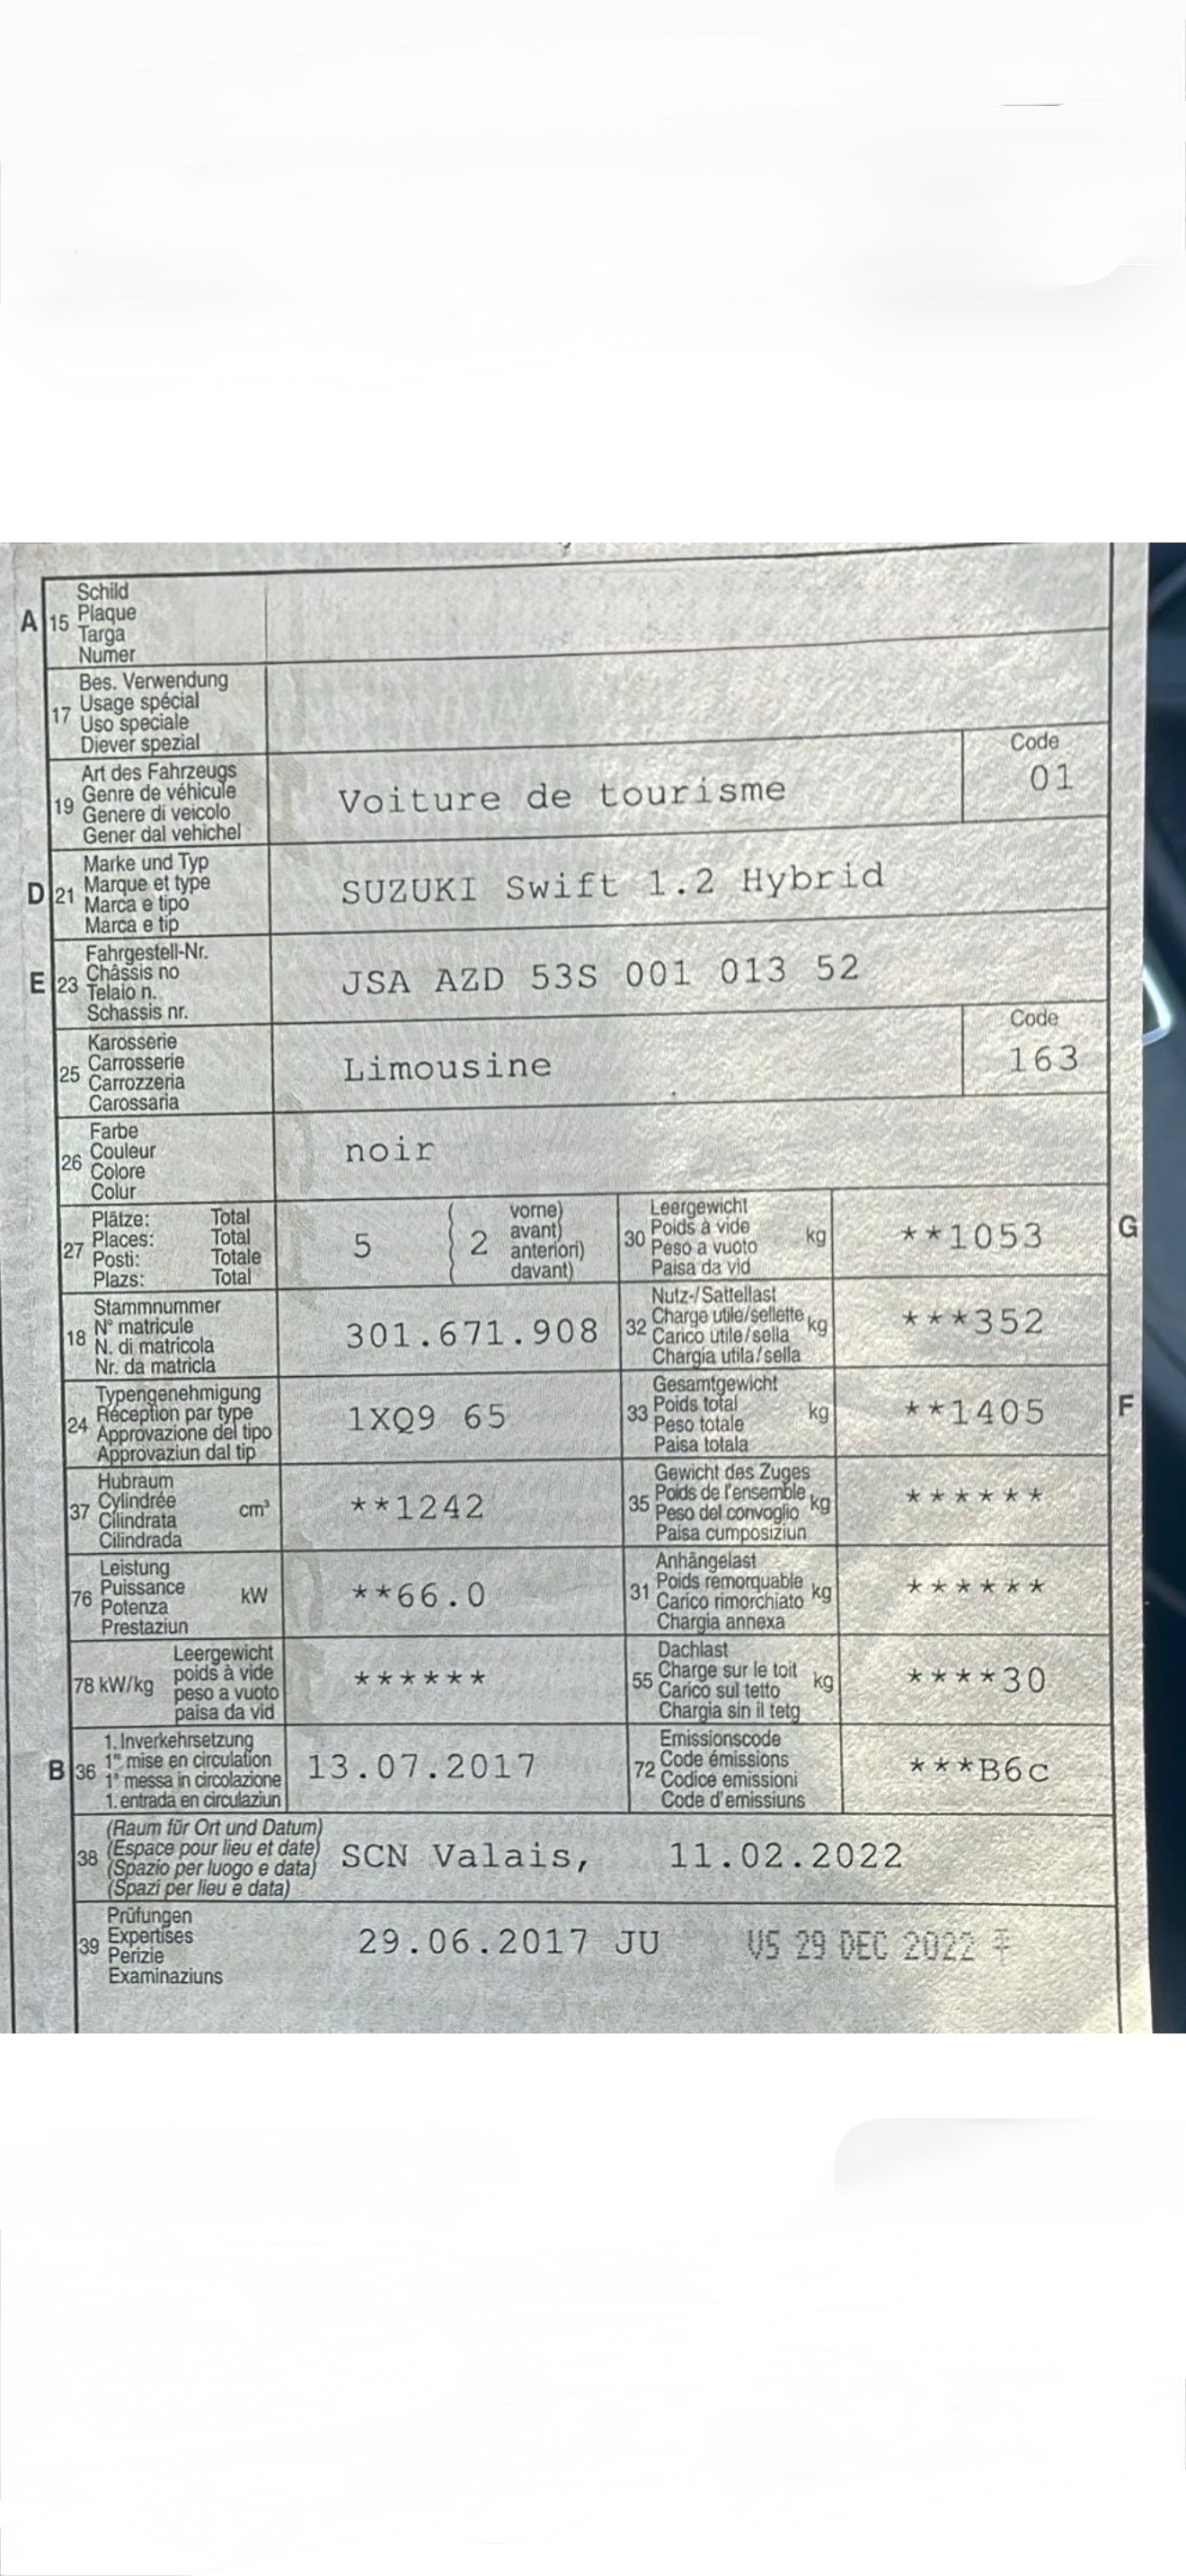 A 15 Schild
Plaque
Targa
Numer
17 Bes. Verwendung
Usage spécial
Uso speciale
Diever spezial
19 Art des Fahrzeugs
Genre de véhicule
Genere di veicolo
Gener dal vehichel
Voiture de tourisme
Code
01
D 21 Marke und Typ
Marque et type
Marca e tipo
Marca e tip
SUZUKI Swift 1.2 Hybrid
E 23 Fahrgestell-Nr.
Châssis no
Telaio n.
Schassis nr.
JSA AZD 53S 001 013 52
25 Karosserie
Carrosserie
Carrozzeria
Carossaria
Limousine
Code
163
26 Farbe
Couleur
Colore
Colur
noir
27 Plätze: Total
Places: Total
Posti: Totale
Plazs: Total
5
2
vorne)
avant)
anteriori)
davant)
30 Leergewicht
Poids à vide
Peso a vuoto
Paisa da vid
kg
**1053
G
18 Stammnummer
N° matricule
N. di matricola
Nr. da matricla
301.671.908
32 Nutz-/Sattellast
Charge utile/sellette
Carico utile/sella
Chargia utila/sella
kg
***352
24 Typengenehmigung
Réception par type
Approvazione del tipo
Approvaziun dal tip
1XQ9 65
33 Gesamtgewicht
Poids total
Peso totale
Paisa totala
kg
**1405
F
37 Hubraum
Cylindrée
Cilindrata
Cilindrada
cm³
**1242
35 Gewicht des Zuges
Poids de l'ensemble
Peso del convoglio
Paisa cumposiziun
kg
******
76 Leistung
Puissance
Potenza
Prestaziun
kW
**66.0
31 Anhängelast
Poids remorquable
Carico rimorchiato
Chargia annexa
kg
******
78 kW/kg
Leergewicht
poids à vide
peso a vuoto
paisa da vid
******
55 Dachlast
Charge sur le toit
Carico sul tetto
Chargia sin il tetg
kg
****30
B 36 1. Inverkehrsetzung
1re mise en circulation
1a messa in circolazione
1. entrada en circulaziun
13.07.2017
72 Emissionscode
Code émissions
Codice emissioni
Code d'emissiuns
***B6c
38 (Raum für Ort und Datum)
(Espace pour lieu et date)
(Spazio per luogo e data)
(Spazi per lieu e data)
SCN Valais, 11.02.2022
39 Prüfungen
Expertises
Perizie
Examinaziuns
29.06.2017 JU
VS 29 DEC 2022